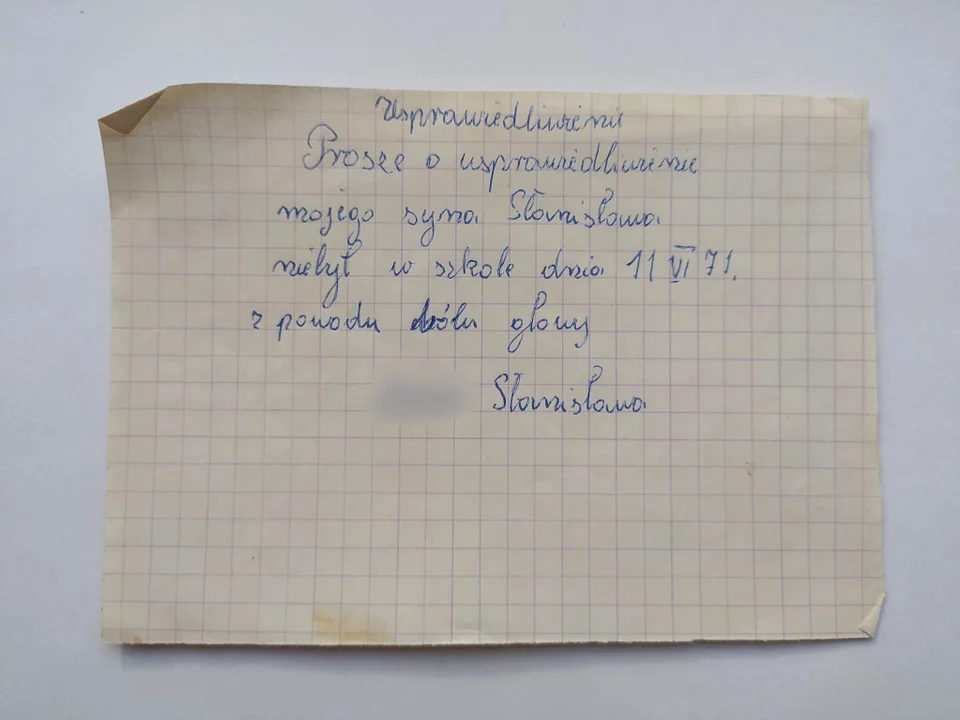 Usprawiedliwienie
Prosze o usprawiedliwienie
mojego syna Stanisława
niebył w szkole dnia 11 VI 71.
z powodu bólu głowy
Stanisława